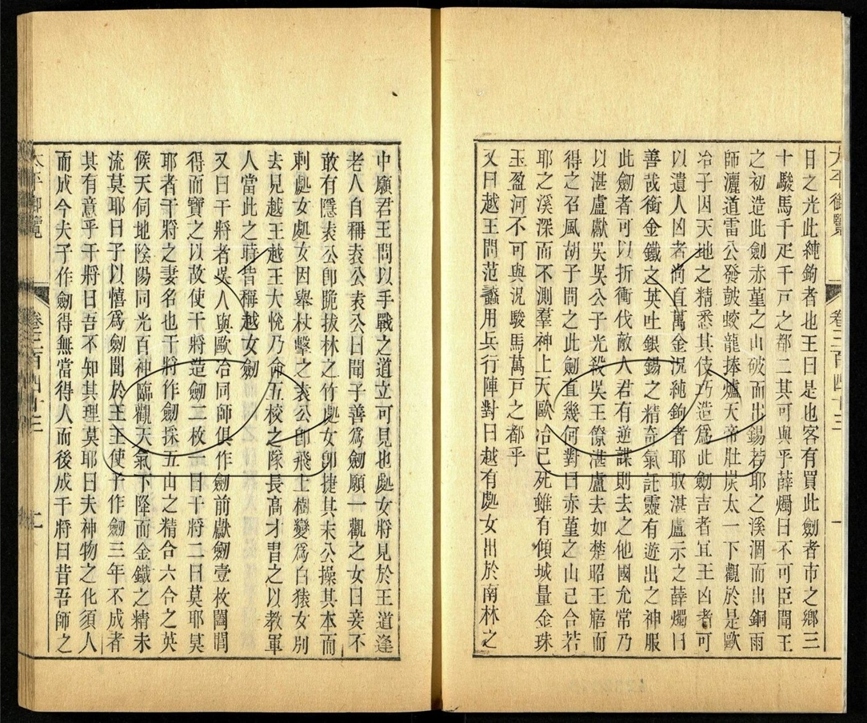 日之光此純鉤者也王曰是也客有買此劍者市之鄉三
十駿馬千疋千戸之都二其可與乎薛燭曰不可臣聞王
之初造此劍赤堇之山破而出錫若耶之溪涸而出銅雨
師灑道雷公發鼓蛟龍捧爐天帝壯炭太一下觀於是歐
冶子因天地之精悉其伎巧造爲此劍吉者宜王凶者可
以遺人凶者尚直萬金况純鉤者耶取湛盧示之薛燭曰
善哉銜金鐵之英吐銀錫之精奇氣託靈有遊出之神服
此劍者可以折衝伐敵人君有逆謀則去之他國允常乃
以湛盧獻吳吳公子光殺吳王僚湛盧去如楚昭王寤而
得之召風胡子問之此劍直幾何對曰赤堇之山已合若
耶之溪深而不測羣神上天歐冶已死雖有傾城量金珠
玉盈河不可與况駿馬萬戸之都乎
又曰越王問范蠡用兵行陣對曰越有處女出於南林之
太平御覽 卷三百四十三
中願君王問以手戰之道立可見也處女將見於王道逢
老人自稱袁公袁公曰聞子善爲劍願一觀之女曰妾不
敢有隱袁公卽跪拔林之竹處女卽捷其末公操其本而
刺處女處女因舉杖擊之袁公卽飛上樹變爲白猿女别
去見越王越王大悅乃命五校之隊長高才習之以教軍
人當此之時皆稱越女劍
又曰干將者吳人與歐冶同師俱作劍前獻劍壹枚闔閭
得而寶之以故使干將造劍二枚一曰干將二曰莫耶莫
耶者干將之妻名也干將作劍採五山之精合六合之英
候天伺地陰陽同光百神臨觀天氣下降而金鐵之精未
流莫耶曰子以憘爲劍聞於王王使子作劍三年不成者
其有意乎干將曰吾不知其理莫耶曰夫神物之化須人
而成今夫子作劍得無當得人而後成干將曰昔吾師之
太平御覽 卷三百四十三